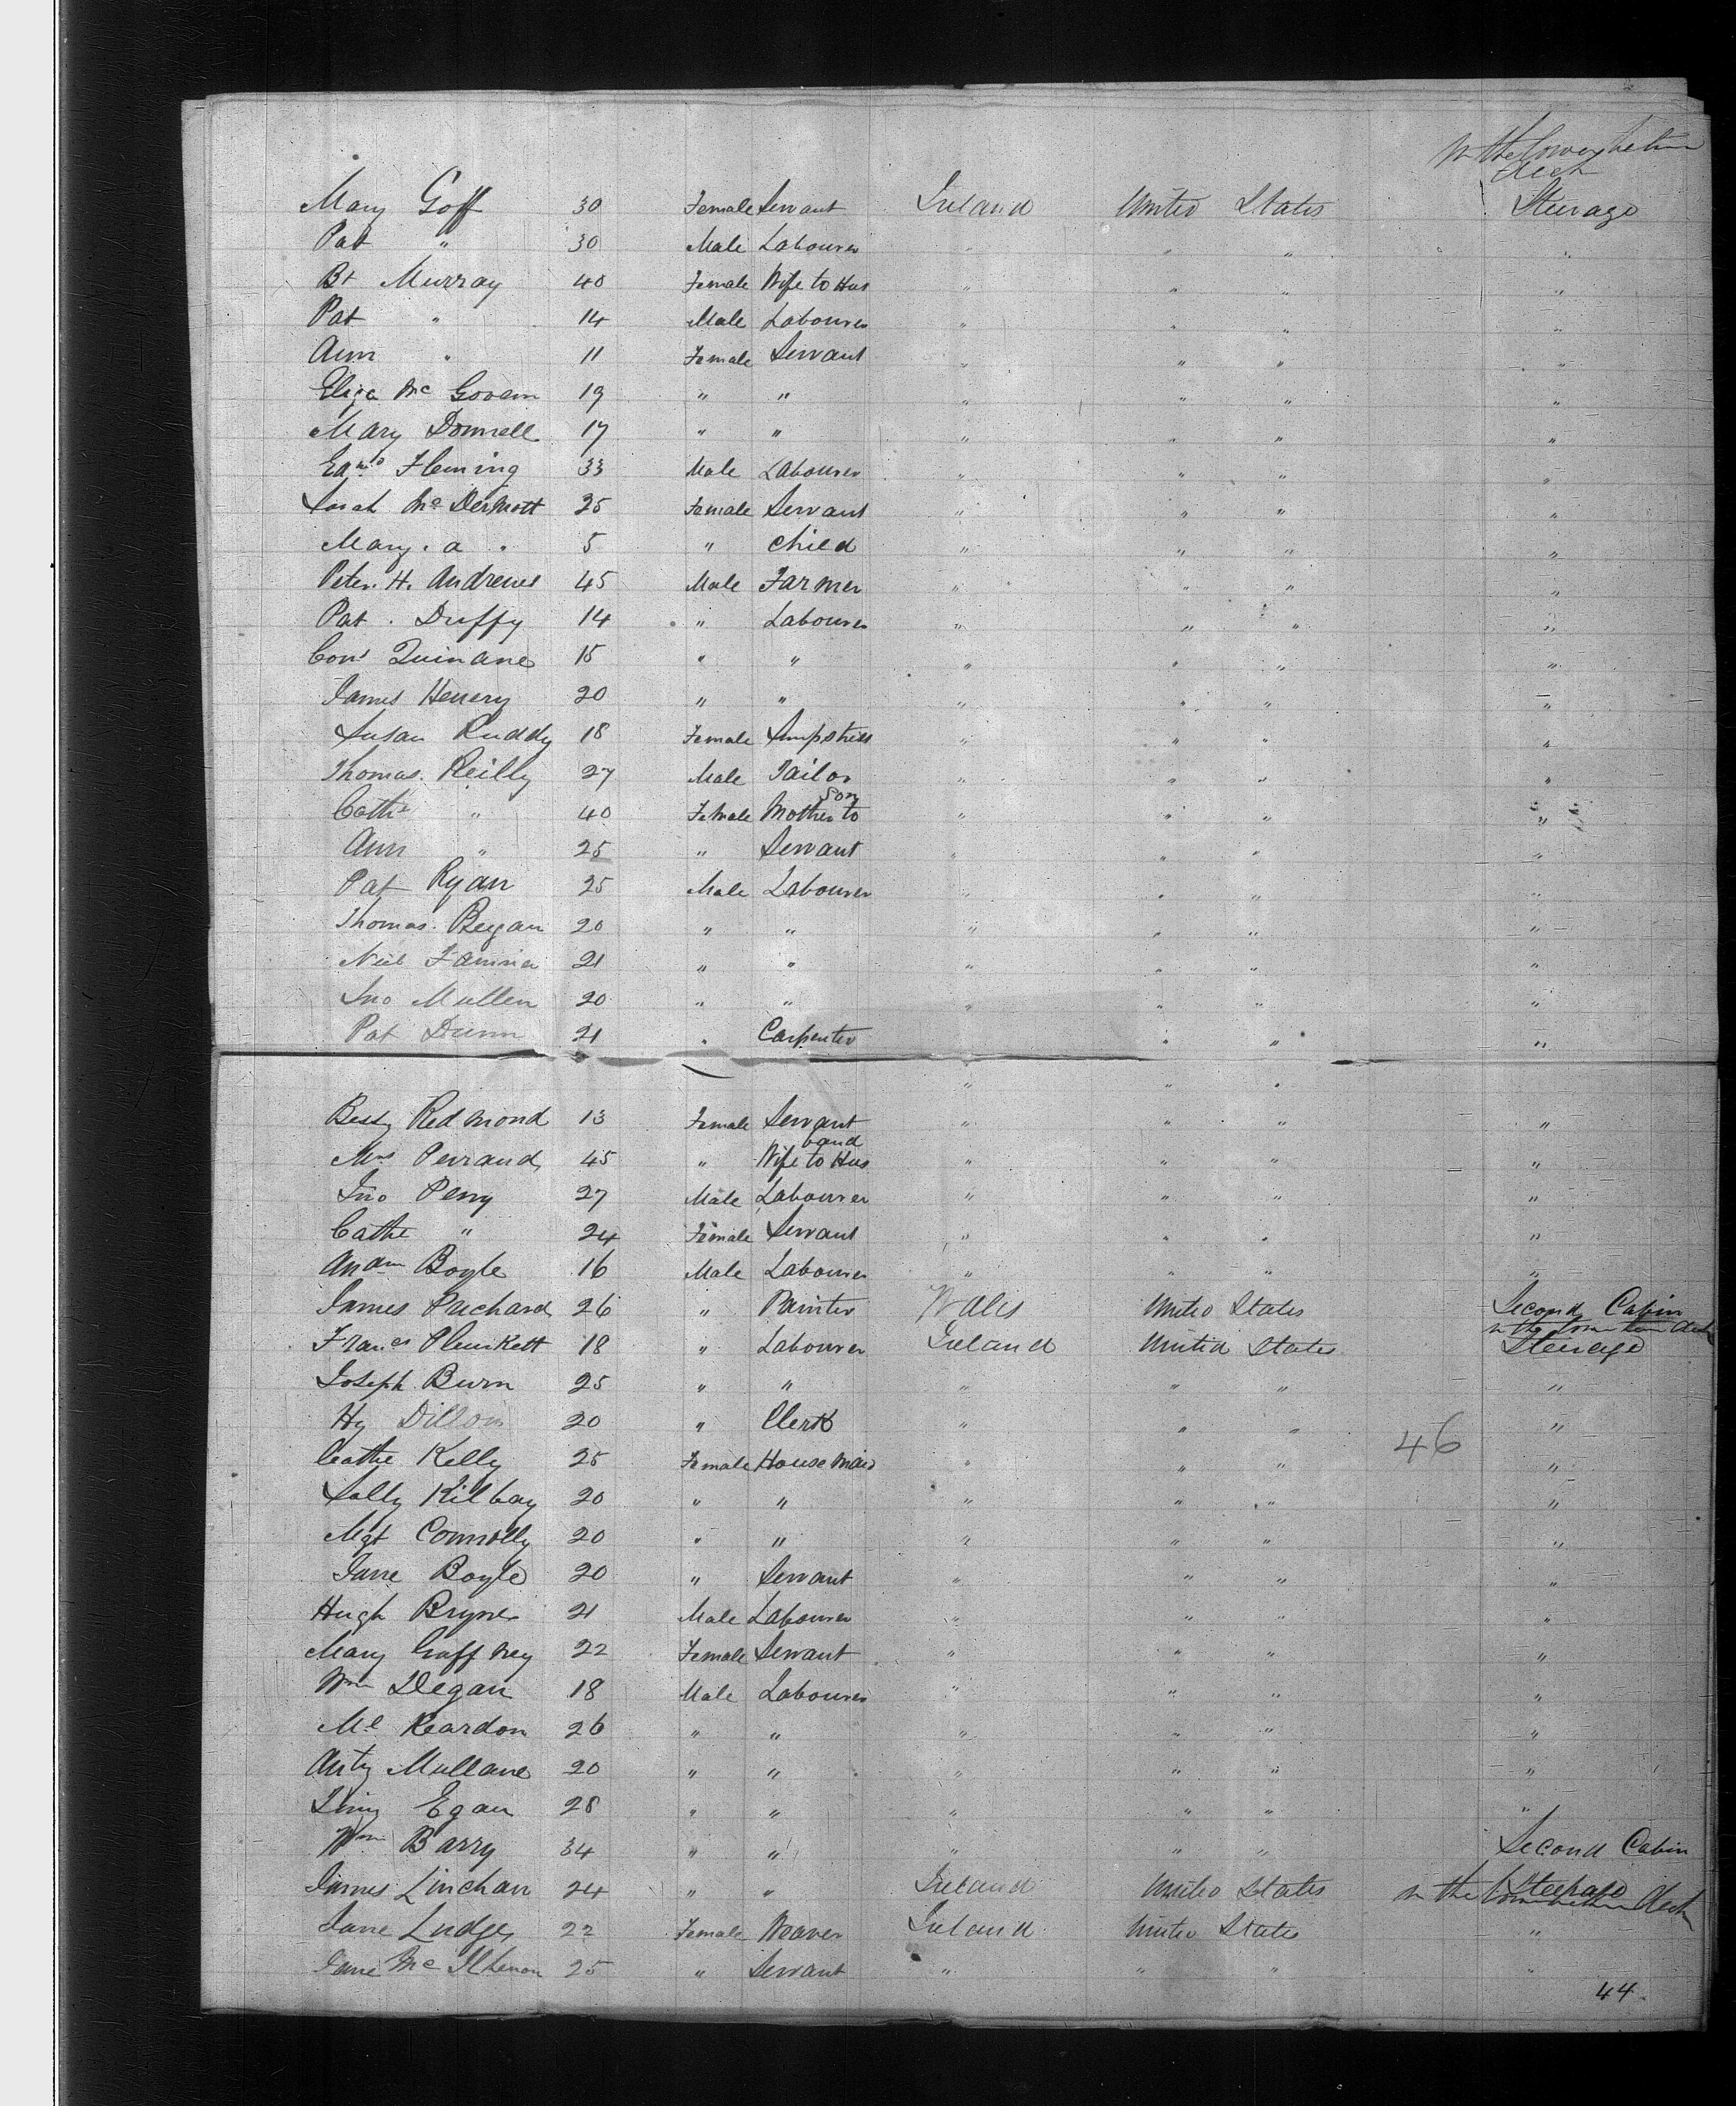 In the lower between
deck
Mary Goff 30 Female Servant Ireland United States Steerage
Pat " 30 Male Labourer " " " "
Bt Murray 40 Female Wife to Hus " " " "
Pat " 14 Male Labourer " " " "
Ann " 11 Female Servant " " " "
Eliza Mc Govern 19 " " " " " "
Mary Donnell 17 " " " " " "
Edmd Fleming 33 Male Labourer " " " "
Sarah Mc Dermott 25 Female Servant " " " "
Mary . a " 5 " Child " " " "
Peter. H. Andrews 45 Male Farmer " " " "
Pat . Duffy 14 " Labourer " " " "
Cors Quinane 15 " " " " " "
James Henery 20 " " " " " "
Susan Ruddy 18 Female Simpstress " " " "
Thomas. Reilly 27 Male Tailor " " " "
son
Cathe " 40 Female Mother to " " " "
Ann " 25 " Servant " " " "
Pat Ryan 25 Male Labourer " " " "
Thomas. Regan 20 " " " " " "
Neil 21 " " " " " "
Jno Mullen 20 " " " " " "
Pat Dunn 21 " Carpenter " " "
" " "
Bessy Redmond 13 Female Servant " " " "
band
Mrs Perrand 45 " Wife to Hus " " " "
Jno Perry 27 Male Labourer " " " "
Cathe " 24 Female Servant " " " "
Boyle 16 Male Labourer " " " "
James Prichard 26 " Painter Wales United States Second Cabin
in the lower between deck
Frances Plunkett 18 " Labourer Ireland United States Steerage
Joseph. Burn 25 " " " " " "
Hy Dillon 20 " Clerk " " " "
46
Cathe Kelly 25 Female House Maid " " " "
Sally Kilbay 20 " " " " " "
Mgt Connolly 20 " " " " " "
Jane Boyle 20 " Servant " " " "
Hugh Bryne 21 Male Labourer " " " "
Mary Gaffney 22 Female Servant " " " "
Wm Degan 18 Male Labourer " " " "
Ml Reardon 26 " " " " " "
Anty Mullane 20 " " " " " "
Timy Egan 28 " " " " " "
Wm Barry 34 " " " " " Second Cabin
James Linehan 24 " " Ireland United States Steerage
in the lower between deck
Jane Ludge 22 Female Weaver Ireland United States "
Jane Mc 25 " Servant " " " "
44